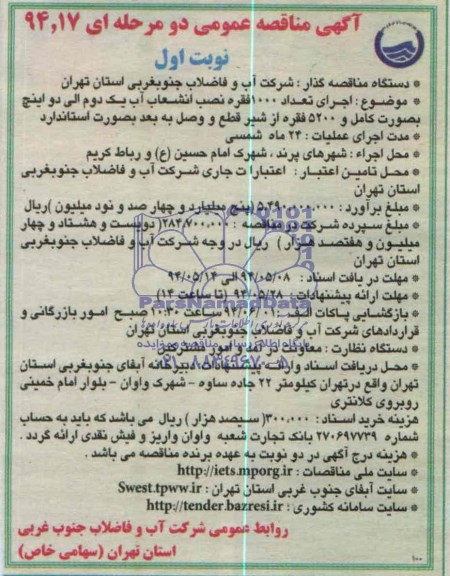 آگهی مناقصه عمومی دو مرحله ای ۹۴،۱۷
نوبت اول
* دستگاه مناقصه گذار : شرکت آب و فاضلاب جنوبغربی استان تهران
* موضوع : اجرای تعداد ۱۰۰۰فقره نصب انشعاب آب یک دوم الی دو اینچ
بصورت کامل و ۵۲۰۰ فقره از شیر قطع و وصل به بعد بصورت استاندارد
* مدت اجرای عملیات : ۲۴ ماه شمسی
* محل اجراء : شهرهای پرند ، شهرک امام حسین (ع) و رباط کریم
* محل تامین اعتبار : اعتبارات جاری شرکت آب و فاضلاب جنوبغربی
استان تهران
* مبلغ برآورد : ۵،۴۹۰،۰۰۰،۰۰۰ (پنج میلیارد و چهار صد و نود میلیون )ریال
* مبلغ سپرده شرکت در مناقصه : ۲۸۴،۷۰۰،۰۰۰( دویست و هشتاد و چهار
میلیون و هفتصد هزار ) ریال در وجه شرکت آب و فاضلاب جنوبغربی
استان تهران
* مهلت دریافت اسناد : ۹۴/۰۵/۰۸ الی ۹۴/۰۵/۱۴
* مهلت ارائه پیشنهادات : ۹۴/۰۵/۲۸ (تا ساعت ۱۴)
ParsNamadData
* بازگشایی پاکات الف : ۹۴/۰۶/۰۱ ساعت ۱۰:۳۰ صبح امور بازرگانی و
قراردادهای شرکت آب و فاضلاب جنوبغربی استان تهران
* دستگاه نظارت : معاونت درآمد و امور مشترکین
* محل دریافت اسناد وارائه پیشنهادات : دبیرخانه آبفای جنوبغربی استان
تهران واقع درتهران کیلومتر ۲۲ جاده ساوه - شهرک واوان - بلوار امام خمینی
روبروی کلانتری
هزینه خرید اسناد : ۳۰۰،۰۰۰( سیصد هزار ) ریال می باشد که باید به حساب
شماره ۲۷۰۶۹۷۷۳۹ بانک تجارت شعبه واوان واریز و فیش نقدی ارائه گردد .
* هزینه درج آگهی در دو نوبت به عهده برنده مناقصه می باشد .
* سایت ملی مناقصات : http://iets.mporg.ir
* سایت آبفای جنوب غربی استان تهران : Swest.tpww.ir
* سایت سامانه کشوری : http://tender.bazresi.ir
روابط عمومی شرکت آب و فاضلاب جنوب غربی
استان تهران (سهامی خاص)
۱۰۰